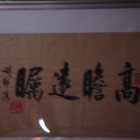 高瞻遠矚